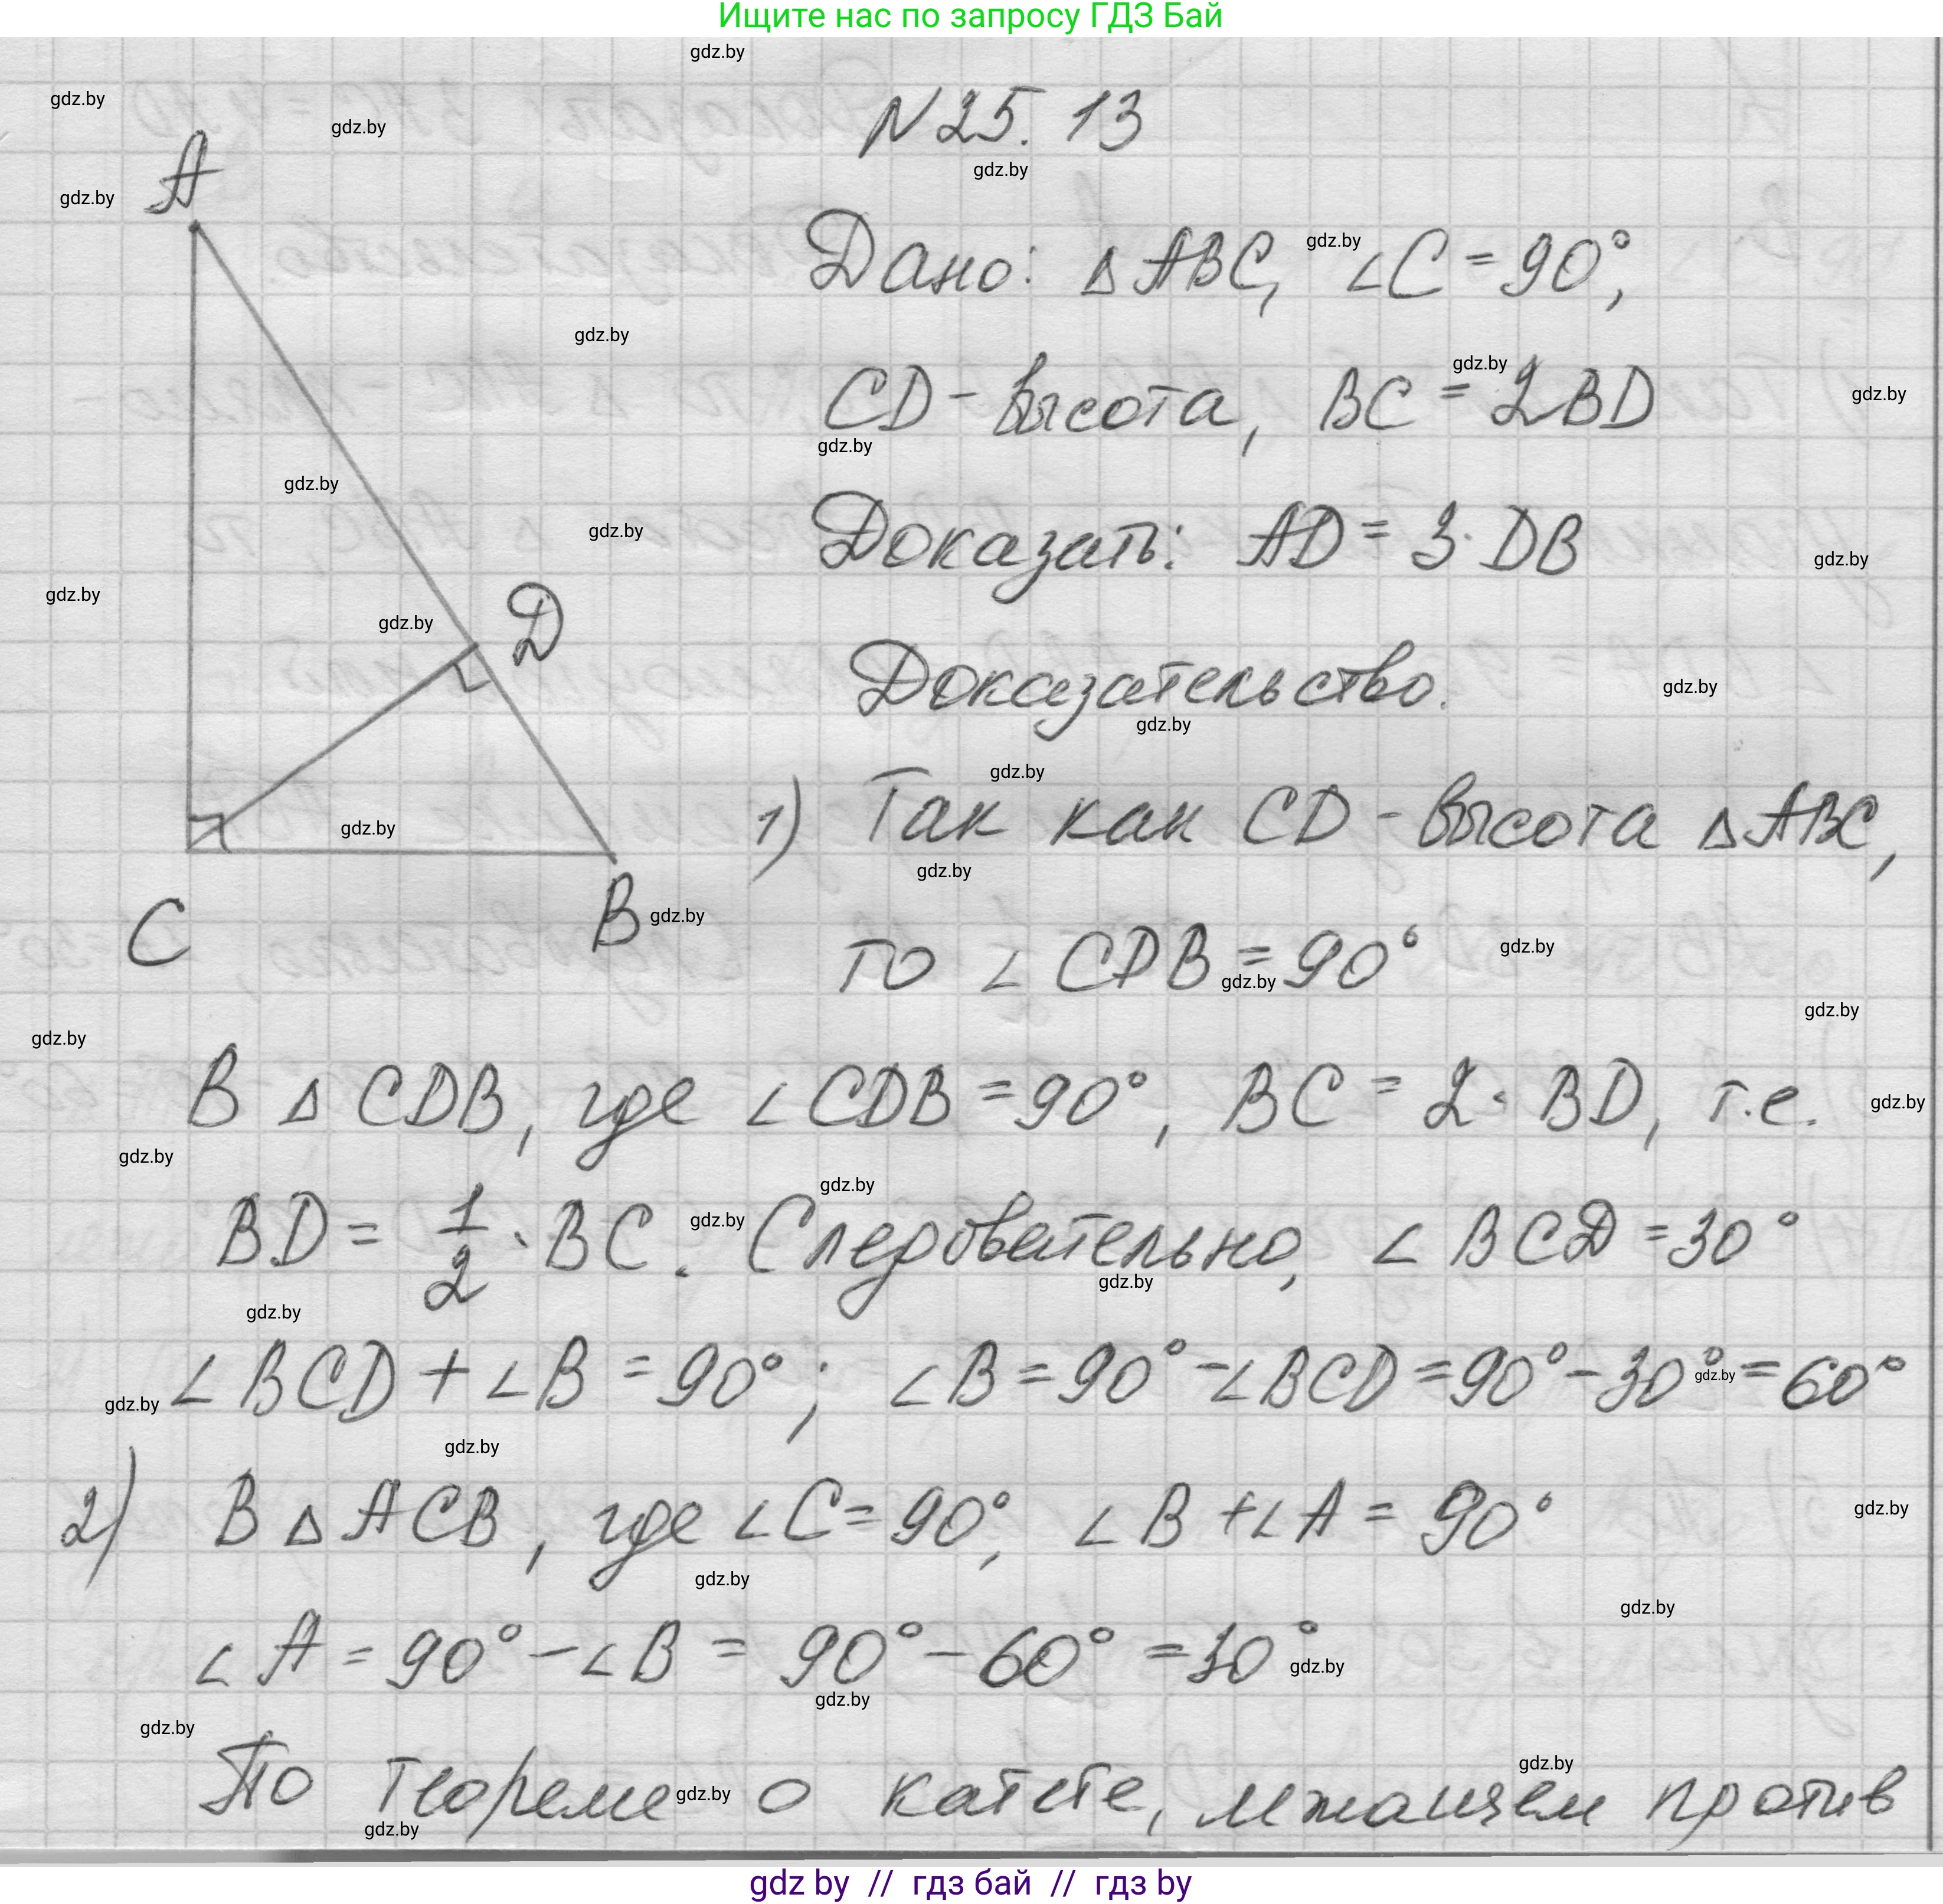 Ищите нас по запросу ГДЗ Бай
N 25. 13
Дано: △ABC, ∠C = 90°,
CD - высота, BC = 2BD
Доказать: AD = 3 · DB
Доказательство.
1) Так как CD - высота △ABC,
то ∠CDB = 90°
В △CDB, где ∠CDB = 90°, BC = 2 · BD, т.е.
BD = 1/2 · BC. Следовательно, ∠BCD = 30°
∠BCD + ∠B = 90°; ∠B = 90° - ∠BCD = 90° - 30° = 60°
2) В △ACB, где ∠C = 90°, ∠B + ∠A = 90°
∠A = 90° - ∠B = 90° - 60° = 30°
По теореме о катете, лежащем против
A
D
C
B
gdz.by
gdz by // гдз бай // гдз by